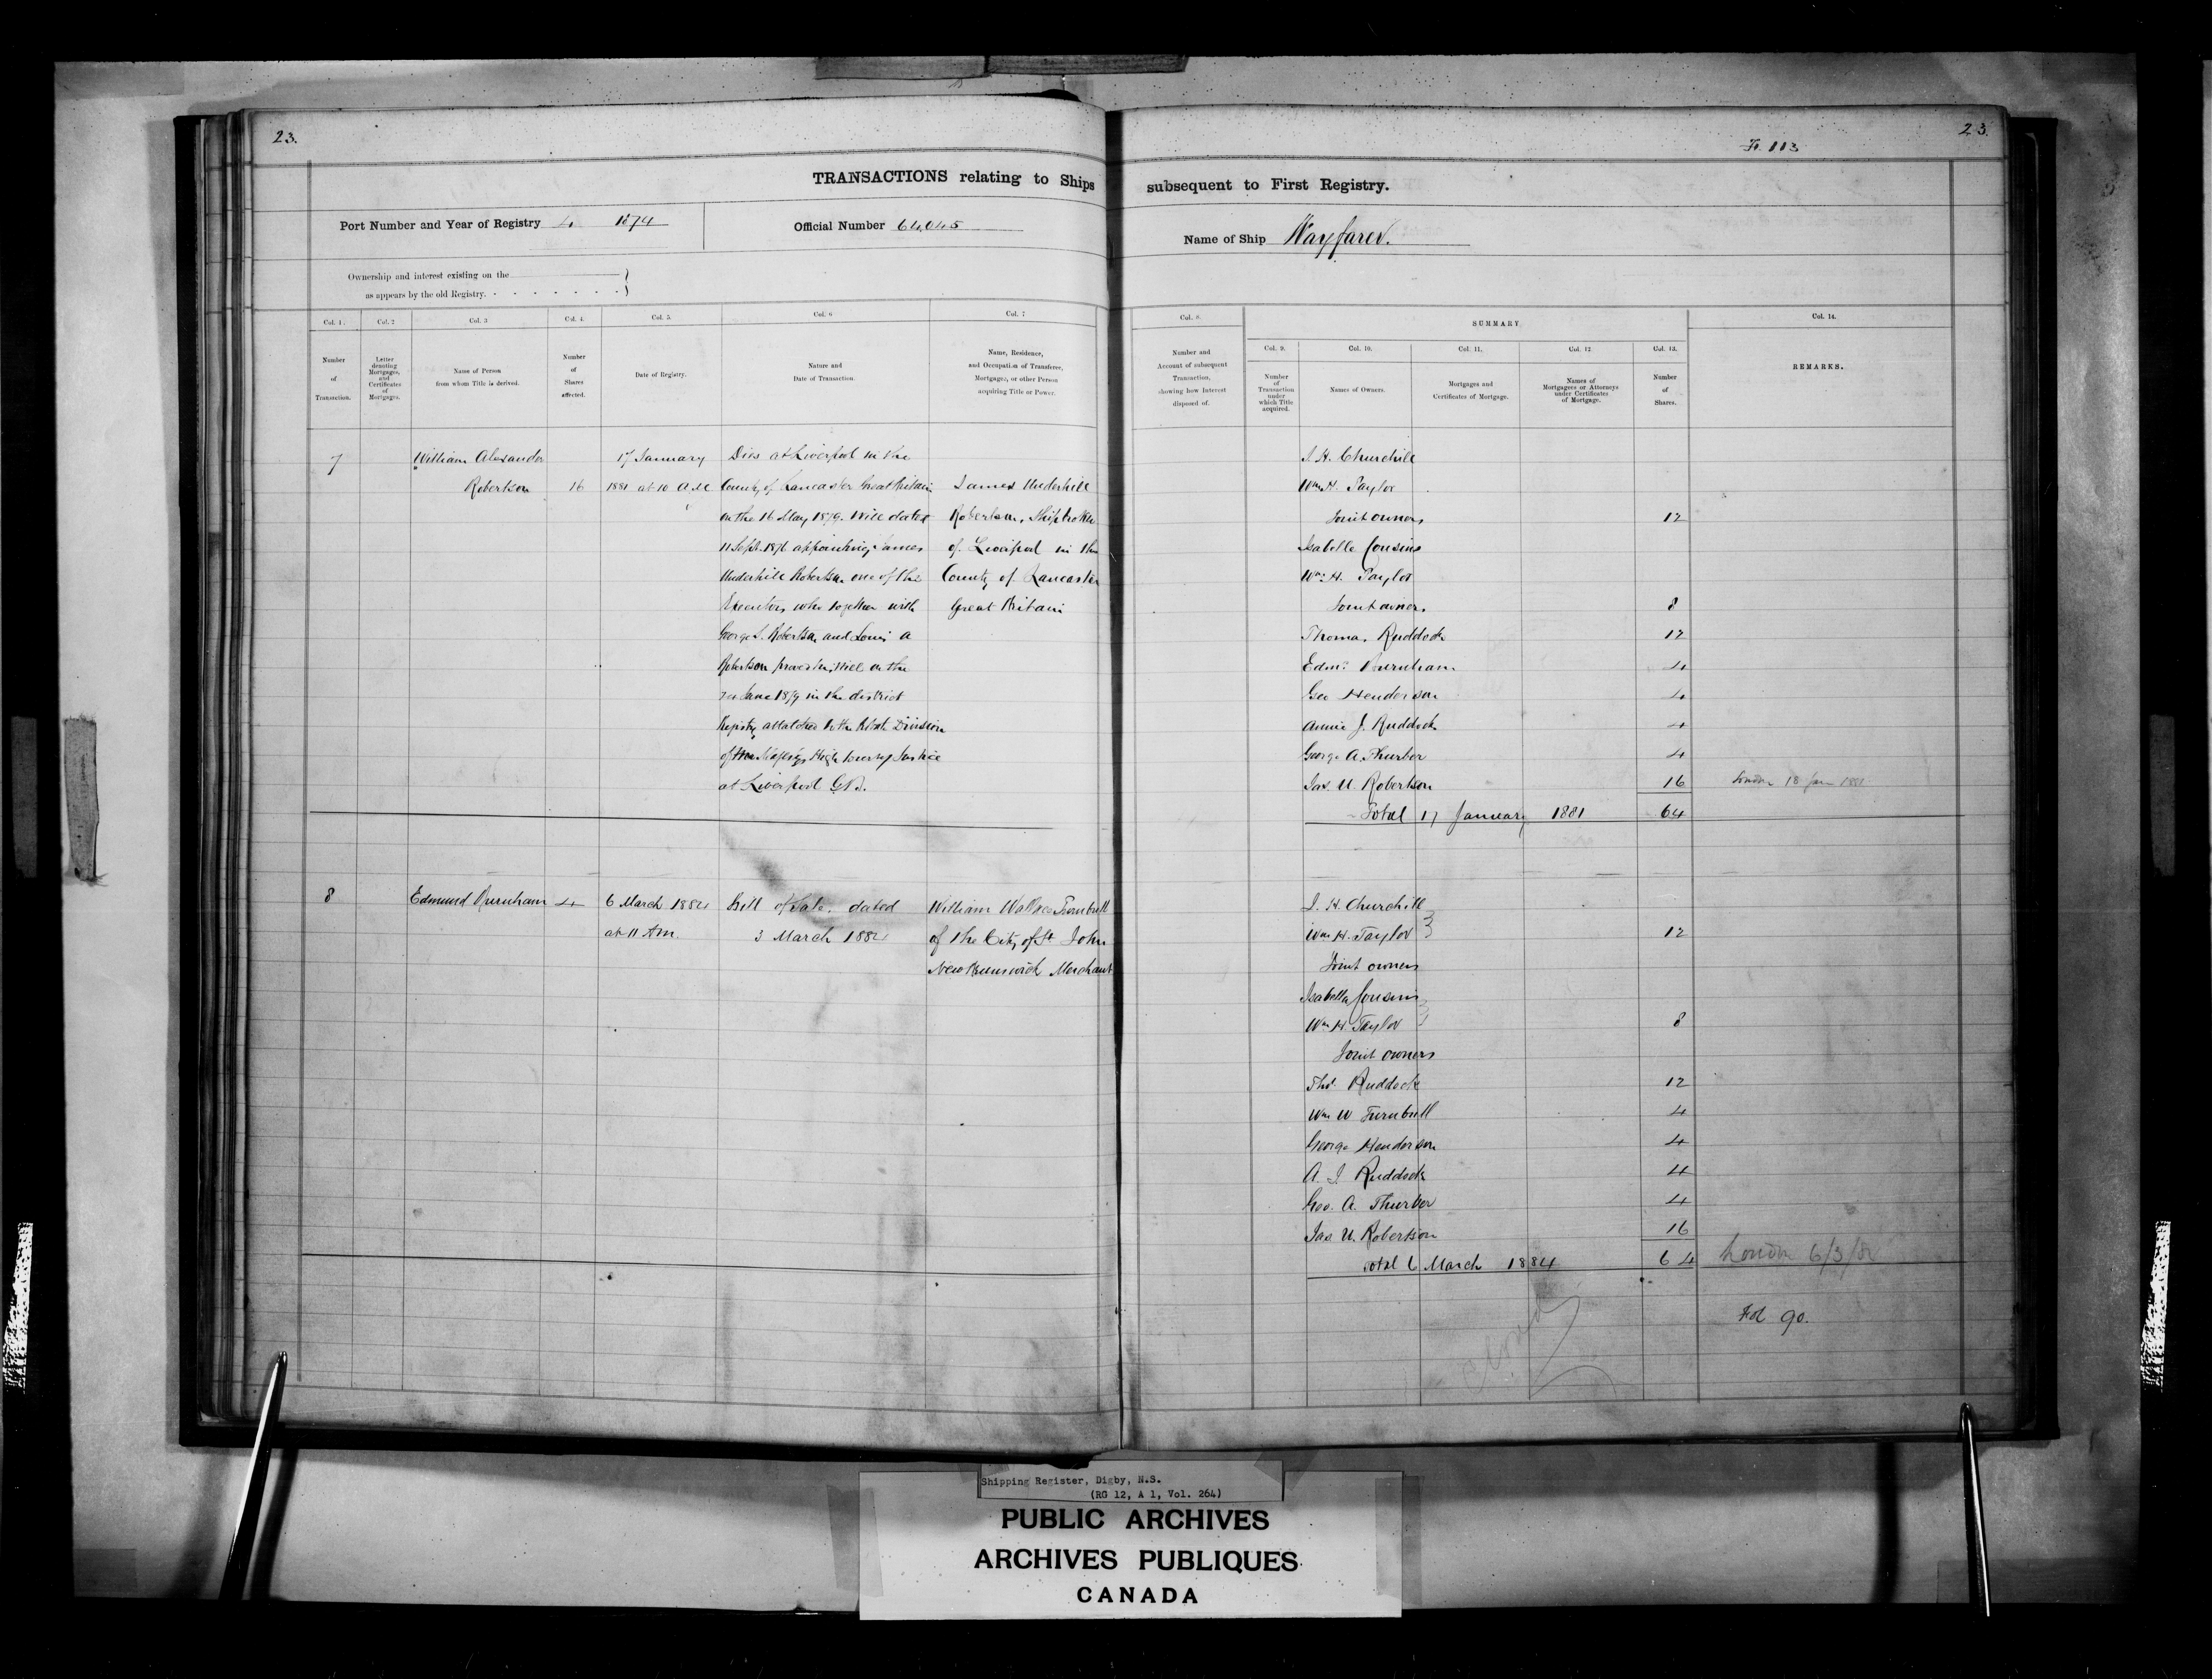 23.
23.
Fo. 113
TRANSACTIONS relating to Ships subsequent to First Registry.
Port Number and Year of Registry 4 1874
Official Number 64,045
Name of Ship Wayfarer.
Ownership and interest existing on the
as appears by the old Registry.
Col. 1.
Number
of
Transaction.
Col. 2
Letter
denoting
Mortgages,
and
Certificates
of
Mortgages.
Col. 3
Name of Person
from whom Title is derived.
Col. 4.
Number
of
Shares
affected.
Col. 5.
Date of Registry.
Col. 6
Nature and
Date of Transaction.
Col. 7
Name, Residence,
and Occupation of Transferee,
Mortgagee, or other Person
acquiring Title or Power.
Col. 8.
Number and
Account of subsequent
Transaction,
showing how Interest
disposed of.
SUMMARY
Col. 9.
Number
of
Transaction
under
which Title
acquired.
Col. 10.
Names of Owners.
Col. 11.
Mortgages and
Certificates of Mortgage.
Col. 12.
Names of
Mortgagees or Attorneys
under Certificates
of Mortgage.
Col. 13.
Number
of
Shares.
Col. 14.
REMARKS.
7
William Alexander
Robertson
16
17 January
1881 at 10 A.M.
Dies at Liverpool in the
County of Lancaster Great Britain
on the 16 May 1879. Will dated
11 Sept. 1876 appointing James
Underhill Robertson one of the
Executors who together with
George S. Robertson and Louis A
Robertson proved his Will on the
June 1879 in the district
Registry attatched to the Probate Division
of Her Majestys High Court of Justice
at Liverpool G.B.
James Underhill
Robertson, Shipbroker
of Liverpool in the
County of Lancaster
Great Britain
J. H. Churchill
Wm. H. Taylor
Joint owners 12
Isabella Cousins
Wm. H. Taylor
Joint owners 8
Thomas Ruddock 12
Edmd Burnham 4
Geo Henderson 4
Annie J. Ruddock 4
George A. Thurber 4
Jas. U. Robertson 16 London 18 Jan 1881
Total 17 January 1881 64
8
Edmund Burnham
4
6 March 1884
at 11 Am
Bill of Sale. dated
3 March 1884
William Wallace Turnbull
of the City of St John
New Brunswick Merchant
J. H. Churchill
Wm H. Taylor 12
Joint owners
Isabella Cousins
Wm H. Taylor 8
Joint owners
Thos. Ruddock 12
Wm W Turnbull 4
George Henderson 4
A. J. Ruddock 4
Geo. A. Thurber 4
Jas U. Robertson 16
Total 6 March 1884 64
London 6/3/84
Fol 90.
Shipping Register, Digby, N.S.
(RG 12, A 1, Vol. 264)
PUBLIC ARCHIVES
ARCHIVES PUBLIQUES
CANADA